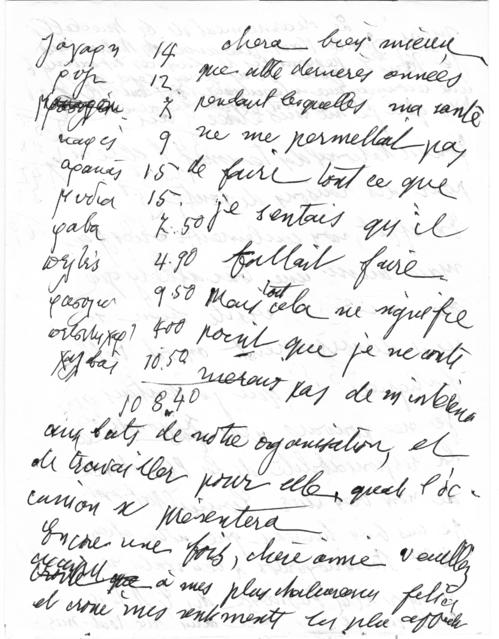 ζάχαρη 14 chera bien mieux
ρύζι 12 que cette dernieres années
7 pendant lesquelles ma santé
καφές 9 ne me permettait pas
15 de faire tout ce que
μύδια 15 je sentais qu'il
φάβα 7.50 fallait faire
4.90 Mais tout cela ne signifie
9.50 point que je ne conti
400 nuerais pas de m'intéresser
χαλβάς 10.50
108.40
aux buts de notre organisation, et
de travailler pour elle, quand l'oc-
casion se présentera
Encore une fois, chère amie veuillez
à mes plus chaleureuses
et croire à mes sentiments les plus